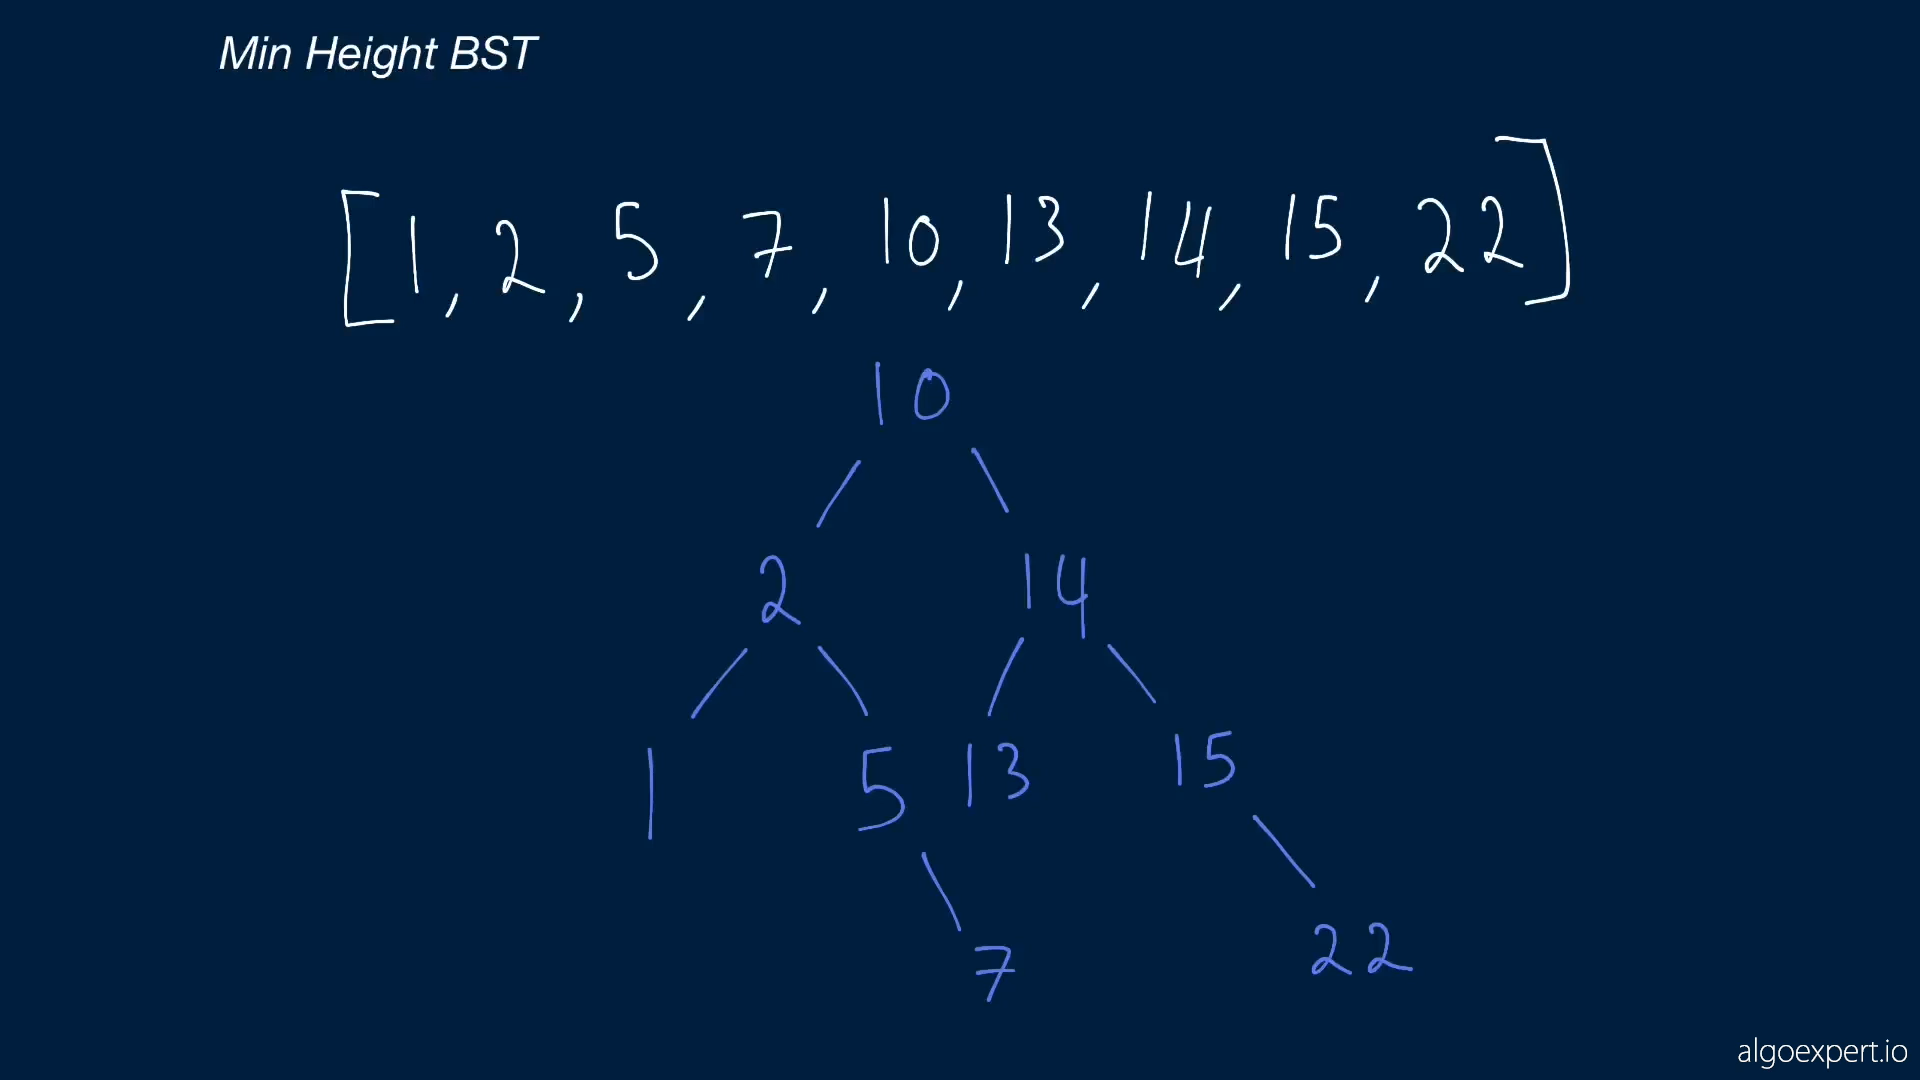 Min Height BST
[1, 2, 5, 7, 10, 13, 14, 15, 22]
10
2 14
1 5 13 15
7 22
algoexpert.io